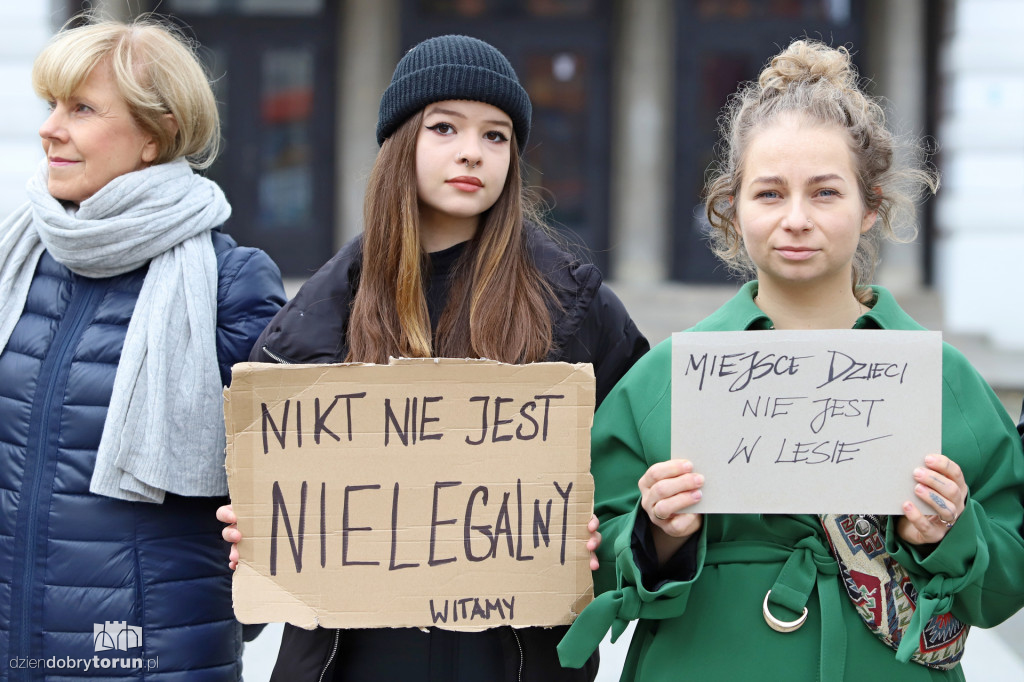 NIKT NIE JEST
NIELEGALNY
WITAMY
MIEJSCE DZIECI
NIE JEST
W LESIE
dziendobrytorun.pl